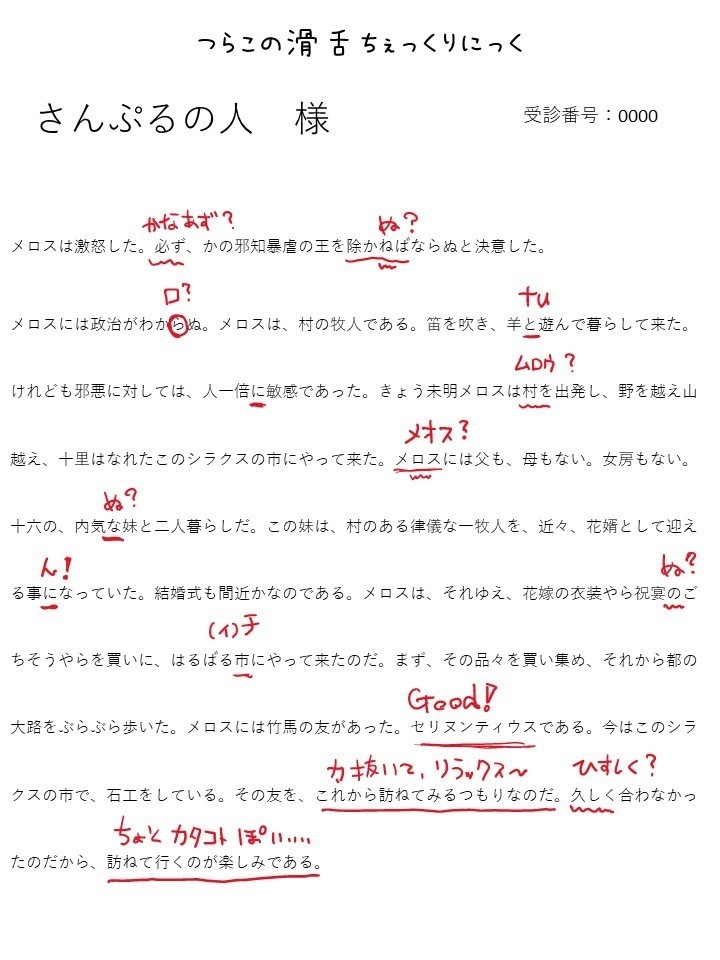 つらこの滑舌ちぇっくりにっく
さんぷるの人　様
受診番号：0000
かなあず？
ぬ？
メロスは激怒した。必ず、かの邪知暴虐の王を除かねばならぬと決意した。
ロ？
tu
メロスには政治がわからぬ。メロスは、村の牧人である。笛を吹き、羊と遊んで暮らして来た。
ムロウ？
けれども邪悪に対しては、人一倍に敏感であった。きょう未明メロスは村を出発し、野を越え山
メオス？
越え、十里はなれたこのシラクスの市にやって来た。メロスには父も、母もない。女房もない。
ぬ？
十六の、内気な妹と二人暮らしだ。この妹は、村のある律儀な一牧人を、近々、花婿として迎え
ん！
ぬ？
る事になっていた。結婚式も間近かなのである。メロスは、それゆえ、花嫁の衣装やら祝宴のご
(イ)チ
ちそうやらを買いに、はるばる市にやって来たのだ。まず、その品々を買い集め、それから都の
Good!
大路をぶらぶら歩いた。メロスには竹馬の友があった。セリヌンティウスである。今はこのシラ
力抜いて、リラックス〜
ひすしく？
クスの市で、石工をしている。その友を、これから訪ねてみるつもりなのだ。久しく合わなかっ
ちょとカタコトぽい…
たのだから、訪ねて行くのが楽しみである。